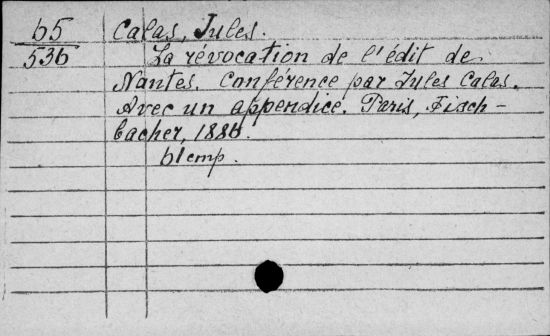 65 Calas, Jules.
536 La révocation de l'édit de
Nantes. Conférence par Jules Calas.
Avec un appendice. Paris, Fisch-
bacher, 1886.
61 cmp.